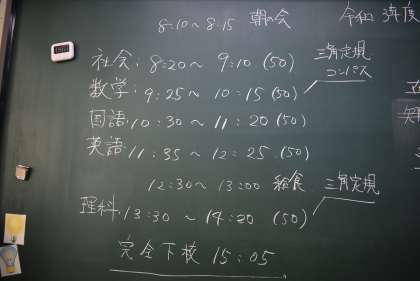 8:10～8:15 朝の会
令和
社会: 8:20～9:10 (50)
三角定規
コンパス
数学: 9:25～10:15 (50)
国語: 10:30～11:20 (50)
英語: 11:35～12:25 (50)
12:30～13:00 給食
三角定規
理科 13:30～14:20 (50)
完全下校 15:05